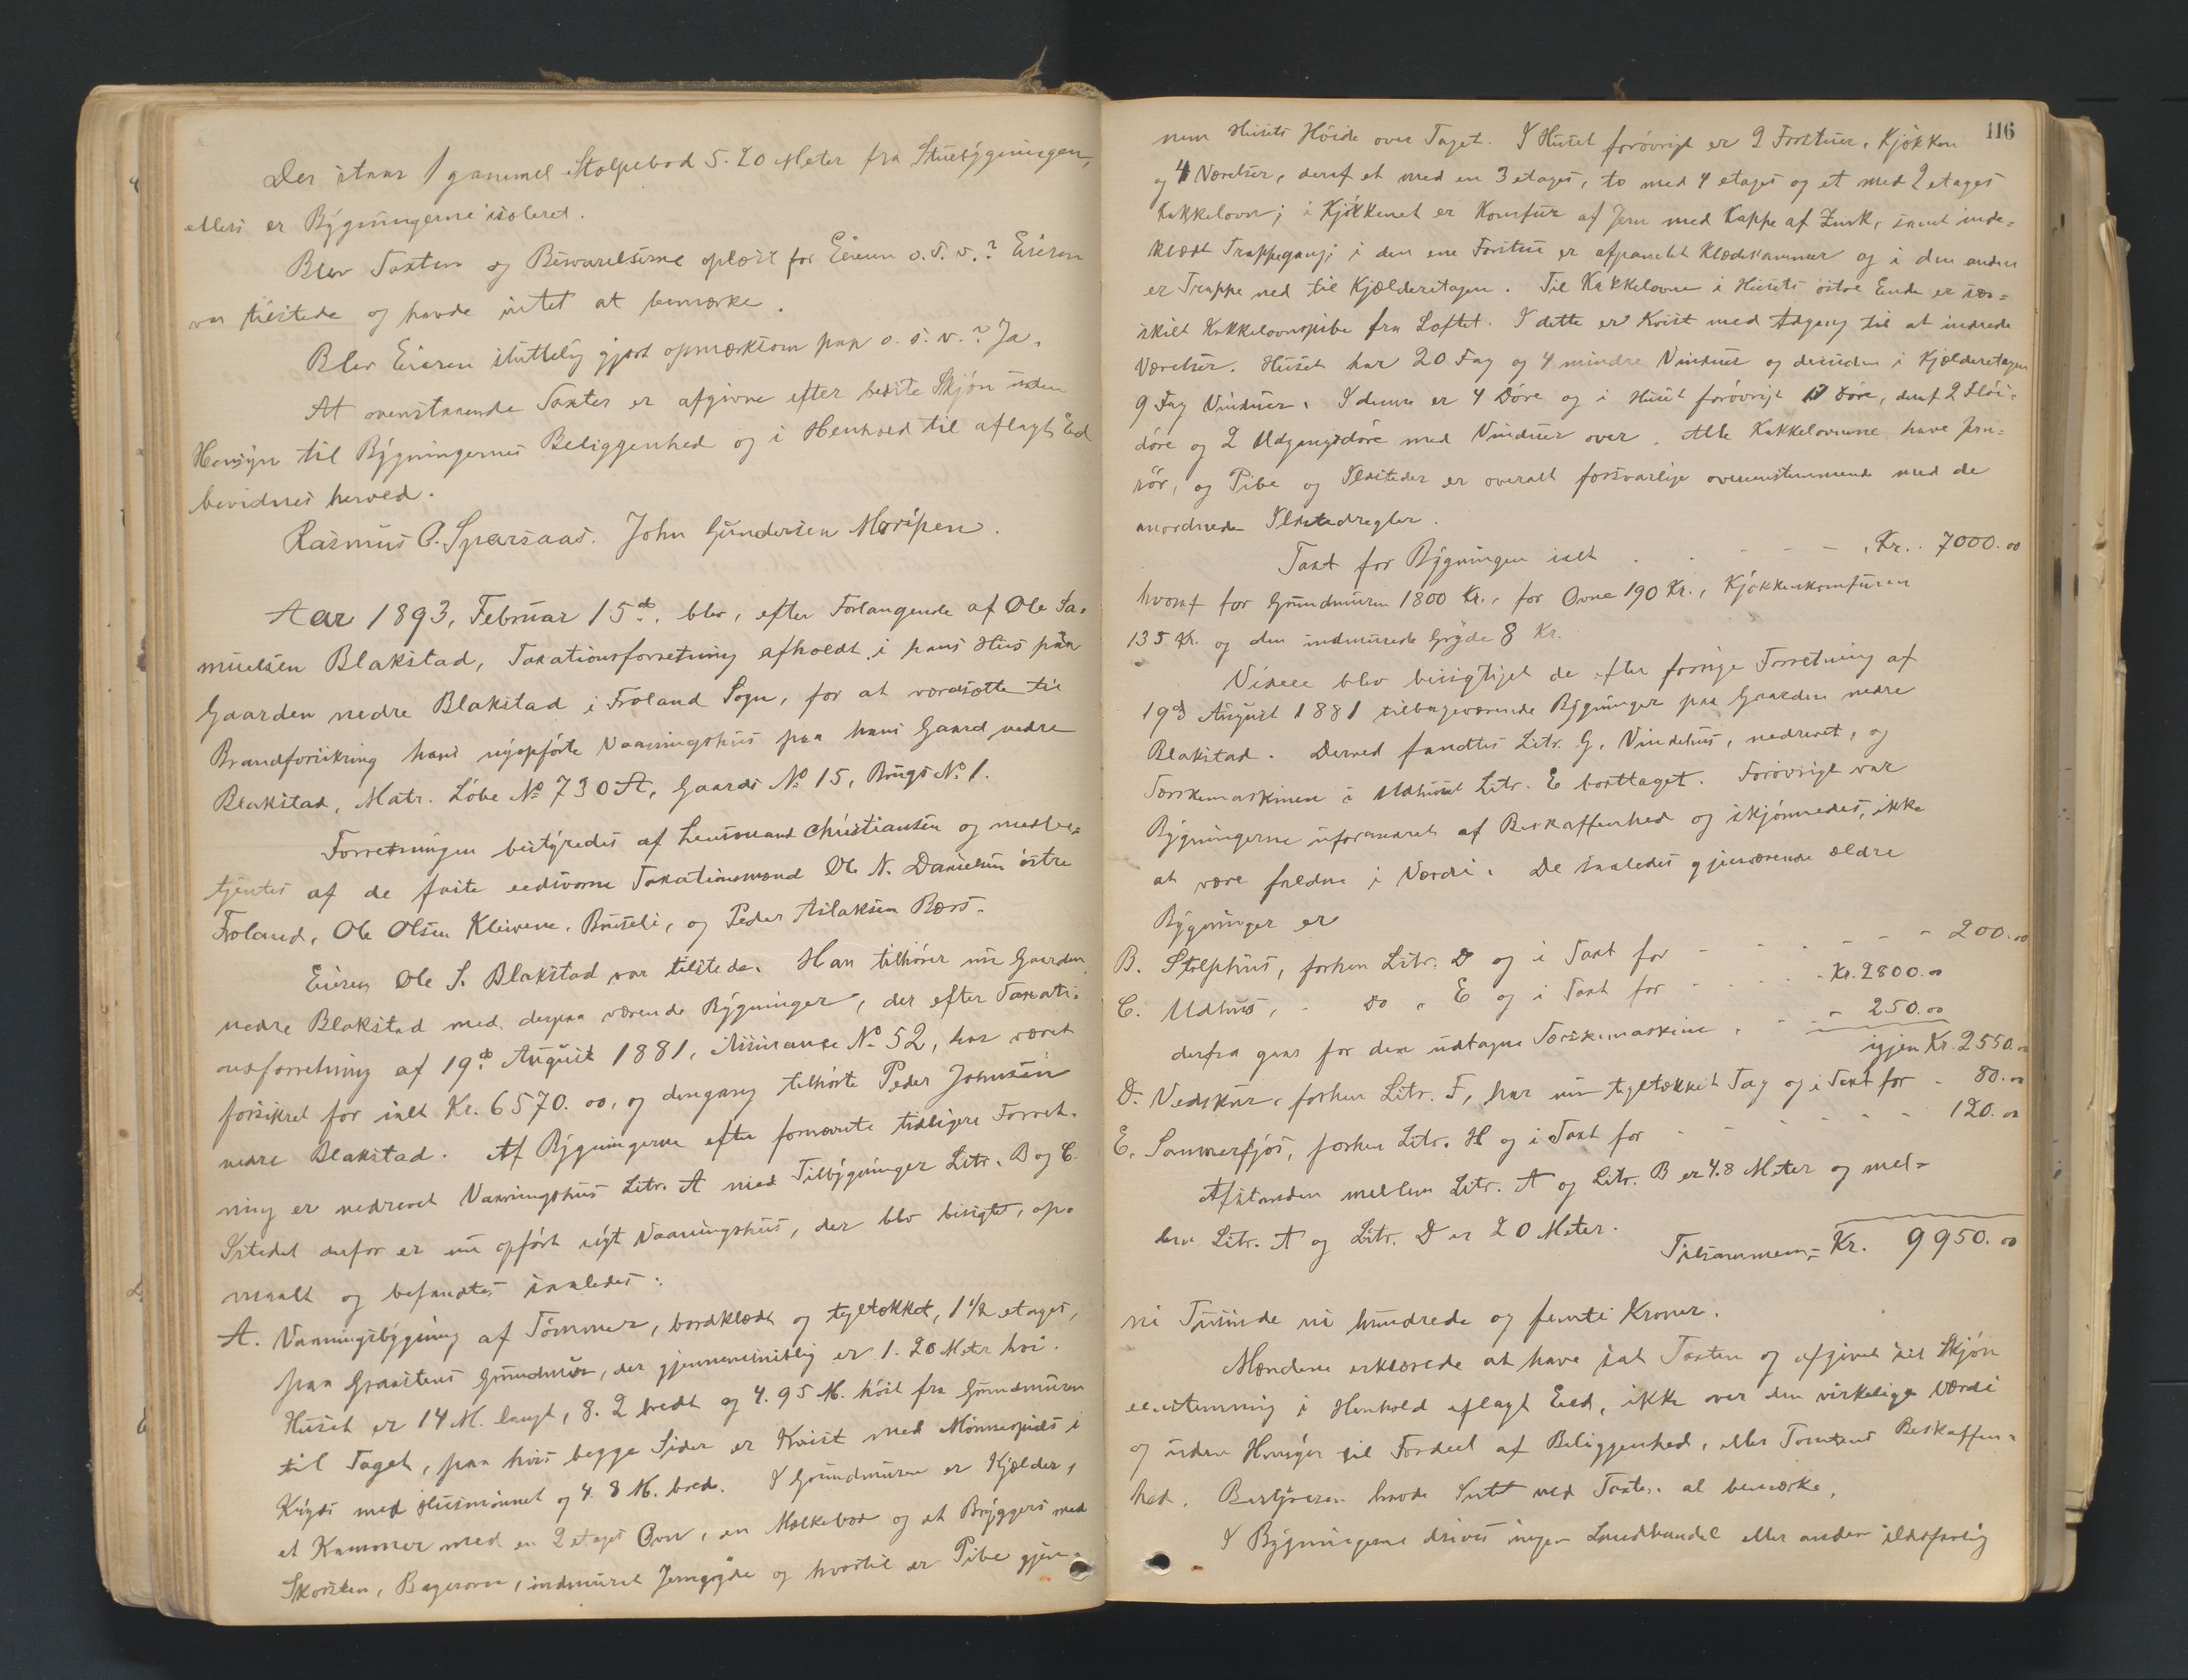 Der staar 1 gammel Stolpebod 5.20 Meter fra Stuebygningen,
ellers er Bygningerne isoleret.
Blev Taxten og Besvarelserne oplæst for Eieren o.s.v.? Eieren
var tilstede og havde intet at bemærke.
Blev Eieren sluttelig gjort opmærksom paa o.s.v.? Ja.
At ovenstaaende Taxter er afgivne efter bedste Skjön uden
Hensyn til Bygningernes Beliggenhed og i Henhold til aflagt Ed
bevidnes herved.
Rasmus O. Sparsaas. John Gundersen Moripen.
Aar 1893, Februar 15de, blev, efter Forlangende af Ole Sa-
muelsen Blakstad, Taxationsforretning afholdt i hans Hus paa
Gaarden nedre Blakstad i Froland Sogn, for at værdsætte til
Brandforsikring hans nyopförte Vaaningshus paa hans Gaard nedre
Blakstad, Matr. Löbe No 730 A, Gaards No 15, Brugs No 1.
Forretningen bestyredes af Lensmand Christiansen og medbe-
tjentes af de faste eedsvorne Taxationsmænd Ole N. Danielsen östre
Froland, Ole Olsen Kleivene, Bruseli, og Peder Aslaksen Bærs.
Eieren Ole S. Blakstad var tilstede. Han tilhörer nu Gaarden
nedre Blakstad med derpaa værende Bygninger, der efter Taxati-
onsforretning af 19de August 1881, Assurance No 52, har været
forsikret for ialt Kr. 6570.00, og dengang tilhörte Peder Johnsen
nedre Blakstad. Af Bygningerne efter fornævnte tidligere Forret-
ning er nedrevet Vaaningshus Litr. A med Tilbygninger Litr. B og C.
Istedet derfor er nu opfört nyt Vaaningshus, der blev besigtet, op-
maalt og befandtes saaledes:
A. Vaaningsbygning af Tömmer, bordklædt og tegltækket, 1 1/2 etages,
paa Graastens Grundmur, der gjennemsnitlig er 1.20 Meter höi.
Huset er 14 M. langt, 8.2 bredt og 4.95 M. höit fra Grundmuren
til Taget, paa hvis begge Sider er Kvist med Mönnespids i
Kryds med Husmönnet og 4.8 M. brede. I Grundmuren er Kjælder,
et Kammer med en 2 etages Ovn, en Melkebod og et Bryggers med
Skorsten, Bagerovn, indmuret Jerngryde og hvortil er Pibe gjen-
116
nem Husets Höide over Taget. I Huset forövrigt er 2 Forstuer, Kjökken
og 4 Værelser, deraf et med en 3 etages, to med 4 etages og et med 2 etages
Kakkelovn; i Kjökkenet er Komfur af Jern med Kappe af Zink, samt inde-
klædt Trappegang; i den ene Forstue er afpanelet Klædekammer og i den anden
er Trappe ned til Kjælderetagen. Til Kakkelovne i Husets östre Ende er sær-
skilt Kakkelovnspibe fra Loftet. I dette er Kvist med Adgang til at indrede
Værelser. Huset har 20 Fag og 4 mindre Vinduer og desuden i Kjælderetagen
9 Fag Vinduer. I denne er 4 Döre og i Huset forövrigt 17 Döre, deraf 2 Flöi-
döre og 2 Udgangsdöre med Vinduer over. Alle Kakkelovnene have Jern-
rör, og Pibe og Ildsteder er overalt forsvarlige overensstemmende med de
anordnede Ildstedregler.
Taxt for Bygningen ialt . . - - - . Kr. 7000.00
hvoraf for Grundmuren 1800 Kr., for Ovne 190 Kr., Kjökkenkomfuren
135 Kr. og den indmurede Gryde 8 Kr.
Videre blev besigtiget de efter forrige Forretning af
19de August 1881 tilbageværende Bygninger paa Gaarden nedre
Blakstad. Derved fandtes Litr. G, Vindehus, nedrevet, og
Tærskemaskinen i Udhuset Litr. E borttaget. Forövrigt var
Bygningerne uforandret af Beskaffenhed og skjönnedes, ikke
at være faldne i Værdi. De saaledes gjenværende ældre
Bygninger er
B. Stolphus, forhen Litr. D og i Taxt for - - - - - 200.00
C. Udhus, - do " E og i Taxt for - - - Kr. 2800.00
derfra gaar for den udtagne Tærskemaskine . - - 250.00
igjen Kr. 2550.00
D. Vedskur, forhen Litr. F, har nu tegltækket Tag og i Taxt for - 80.00
E. Sommerfjös, forhen Litr. H og i Taxt for - - - - - 120.00
Afstanden mellem Litr. A og Litr. B er 4.8 Meter og mel-
lem Litr. A og Litr. D er 20 Meter.
Tilsammen = Kr. 9950.00
ni Tusinde ni hundrede og femti Kroner.
Mændene erklærede at have sat Taxten og afgivet sit Skjön
eenstemmig i Henhold aflagt Eed, ikke over den virkelige Værdi
og uden Hensyn til Fordeel af Beliggenhed, eller Tomtens Beskaffen-
hed. Bestyreren havde Intet ved Taxten at bemærke.
I Bygningerne drives ingen Landhandel eller anden ildsfarlig